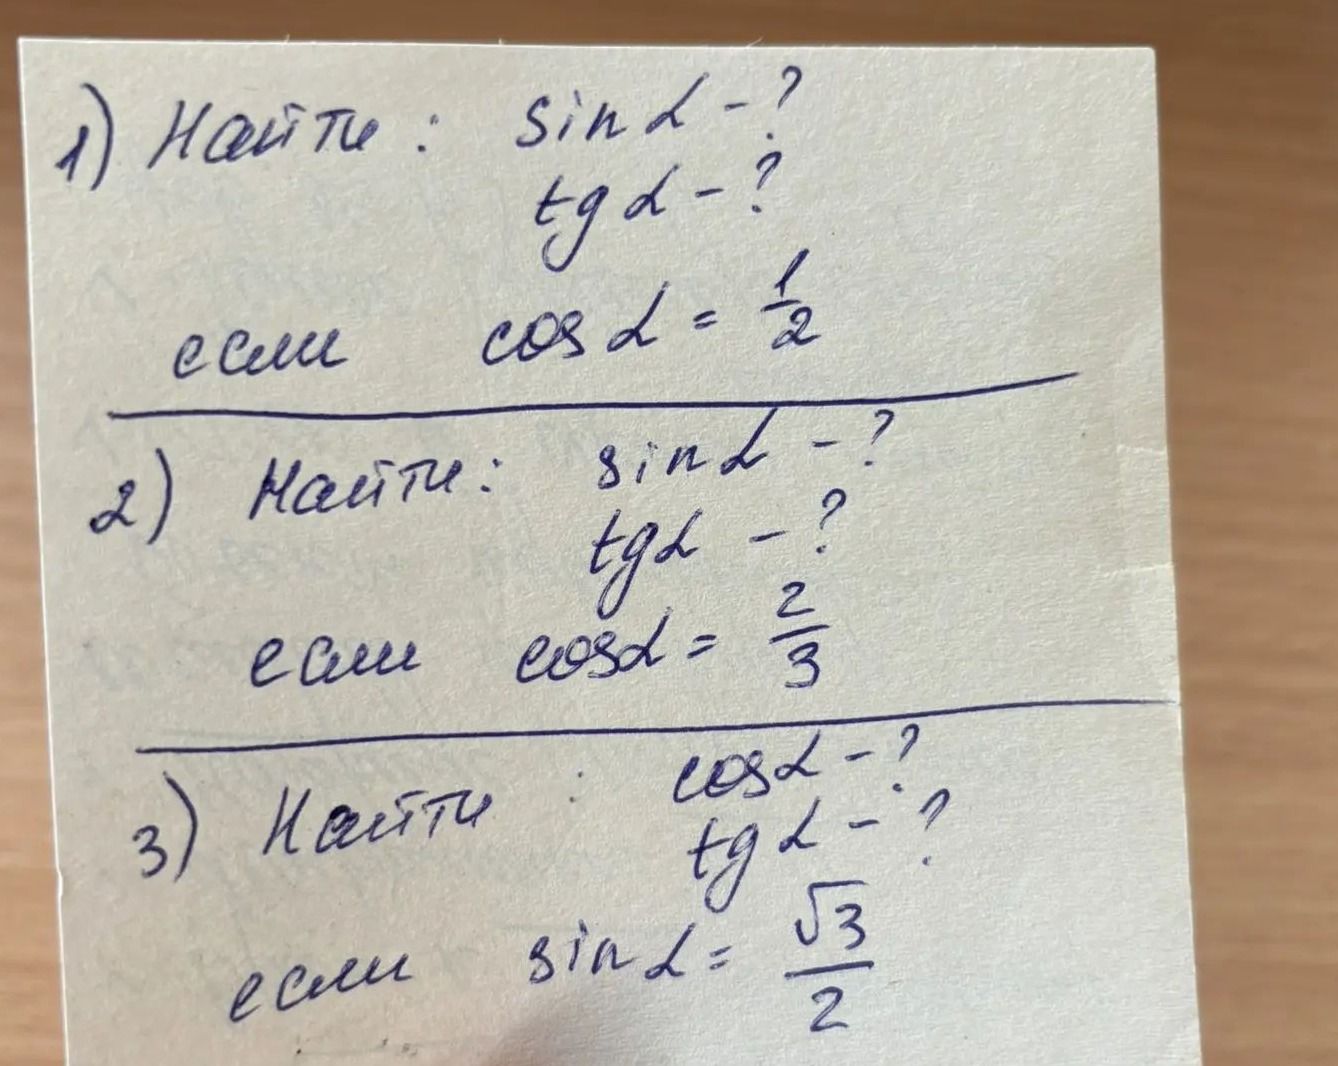 1) Найти: sin α - ?
tg α - ?
если cos α = 1/2
2) Найти: sin α - ?
tg α - ?
если cos α = 2/3
3) Найти : cos α - ?
tg α - ?
если sin α = √3/2